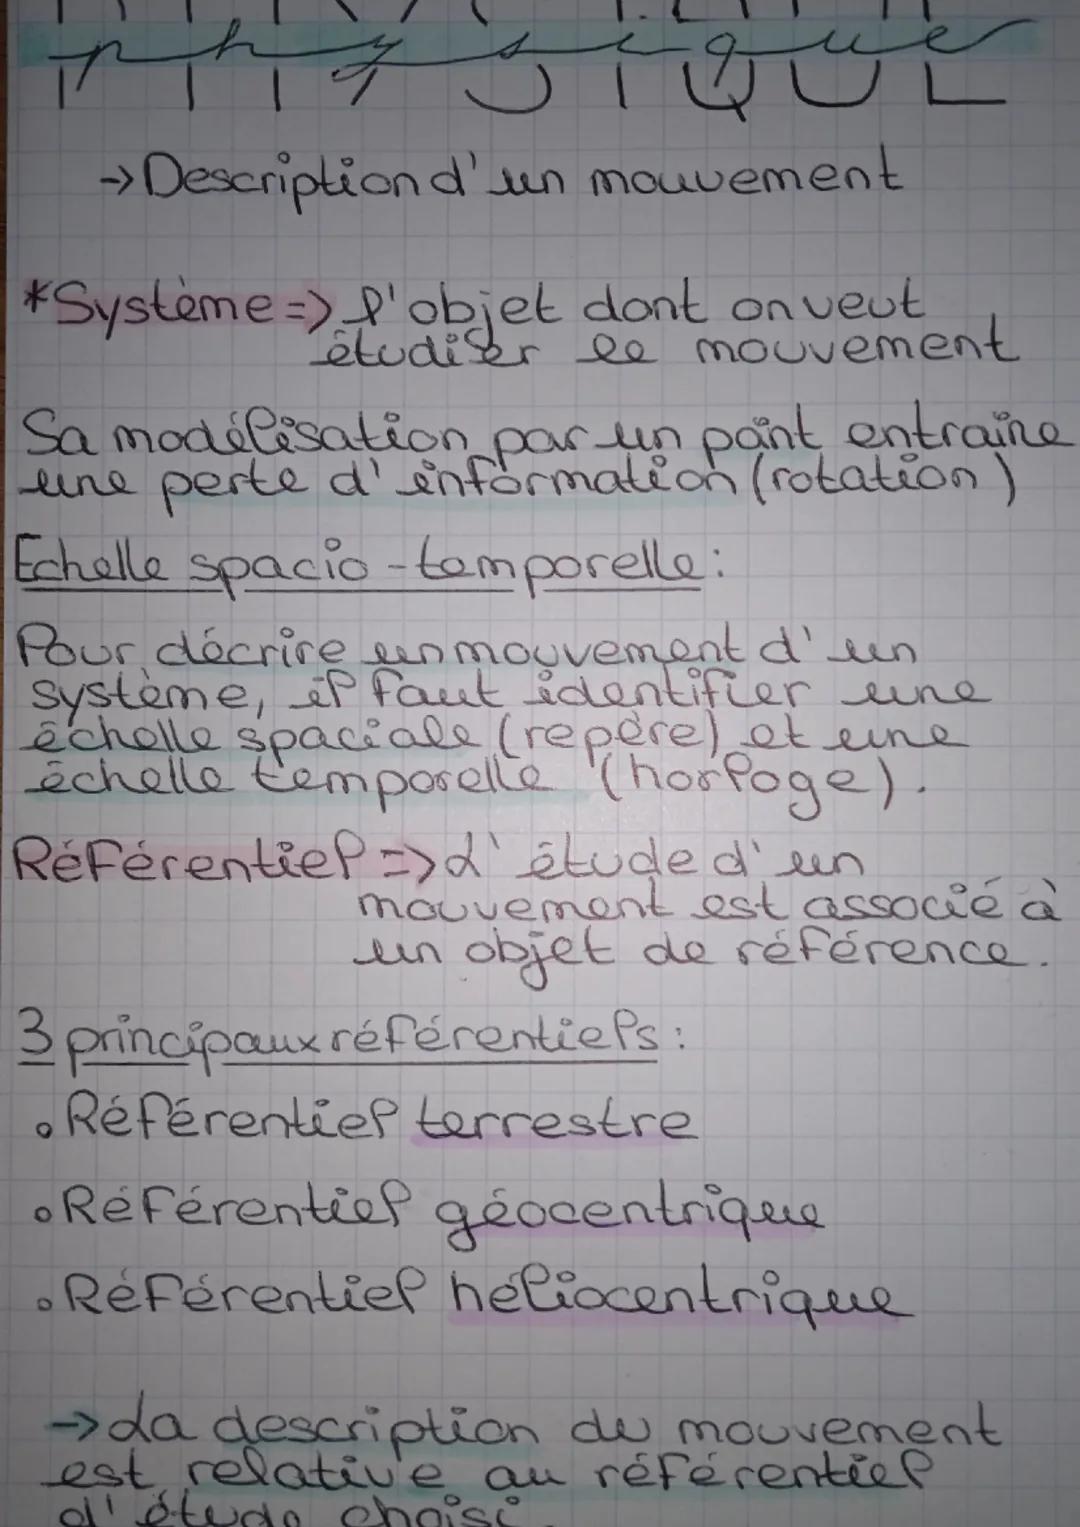 physique
PHYSIQUE
→ Description d'un mouvement
*Système => l'objet dont on veut
étudier le mouvement
Sa modélisation par un point entraîne
une perte d'information (rotation)
Echelle spacio-temporelle :
Pour décrire un mouvement d'un
système, il faut identifier une
échelle spaciale (repère) et une
échelle temporelle (horloge).
Référentiel => L'étude d'un
mouvement est associé à
un objet de référence.
3 principaux référentiels :
• Référentiel terrestre
• Référentiel géocentrique
• Référentiel héliocentrique
→ La description du mouvement
est relative au référentiel
d'étude choisi.